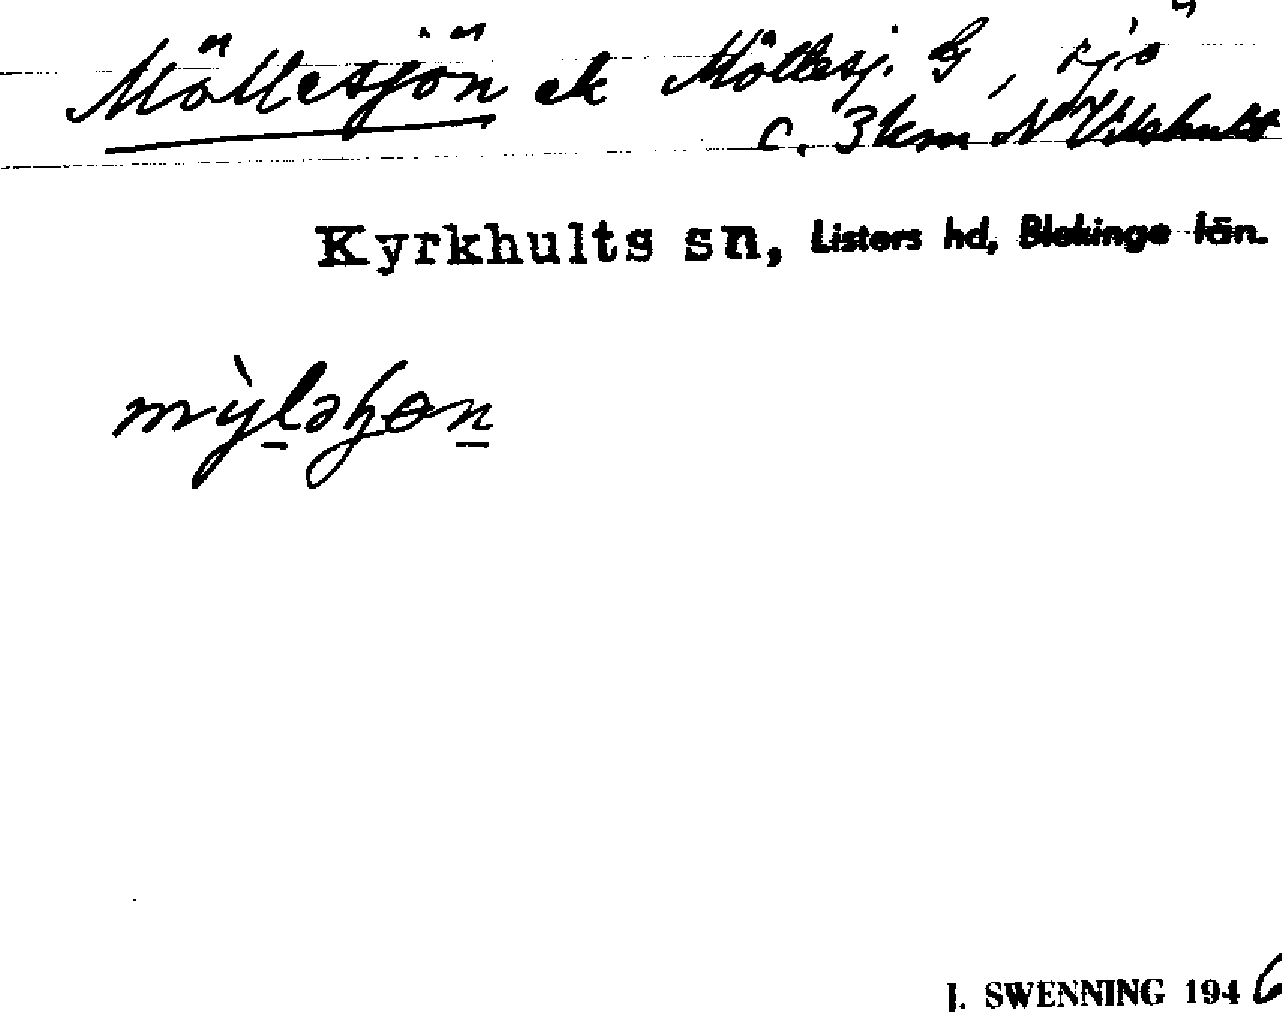 Möllesjön ek Möllesj. G, sjö
c. 3 km N Vilshult
Kyrkhults sn, Listers hd, Blekinge län.
mỳl̲əɧɵn̲
J. SWENNING 1946